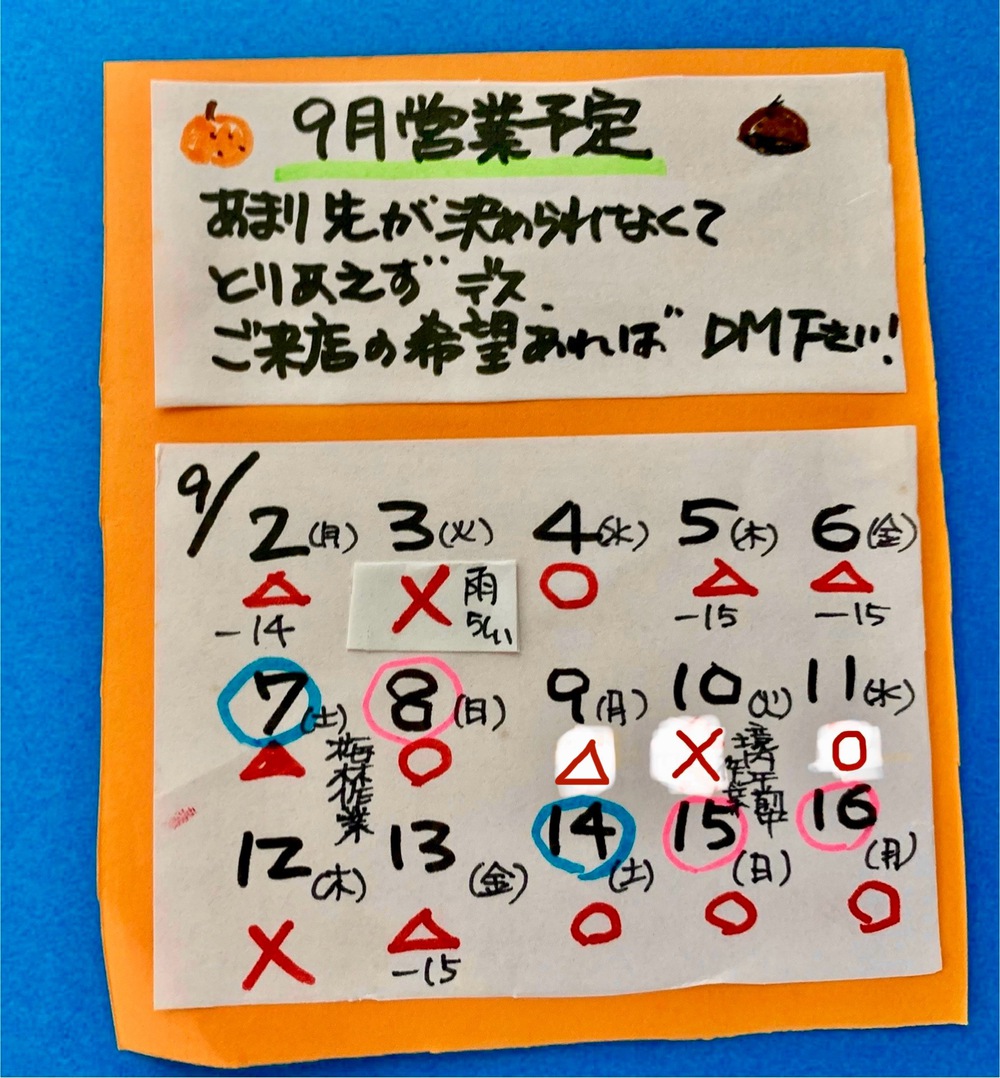 9月営業予定
あまり先が決められなくて
とりあえずデス.
ご来店の希望あれば DM下さい!
9/
2(月) 3(火) 4(水) 5(木) 6(金)
△ × 雨 ○ △ △
-14 らしい -15 -15
7(土) 8(日) 9(月) 10(火) 11(水)
▲ 梅林作業 ○ △ × 午前 ○
12(木) 13(金) 14(土) 15(日) 16(月)
× △ ○ ○ ○
-15